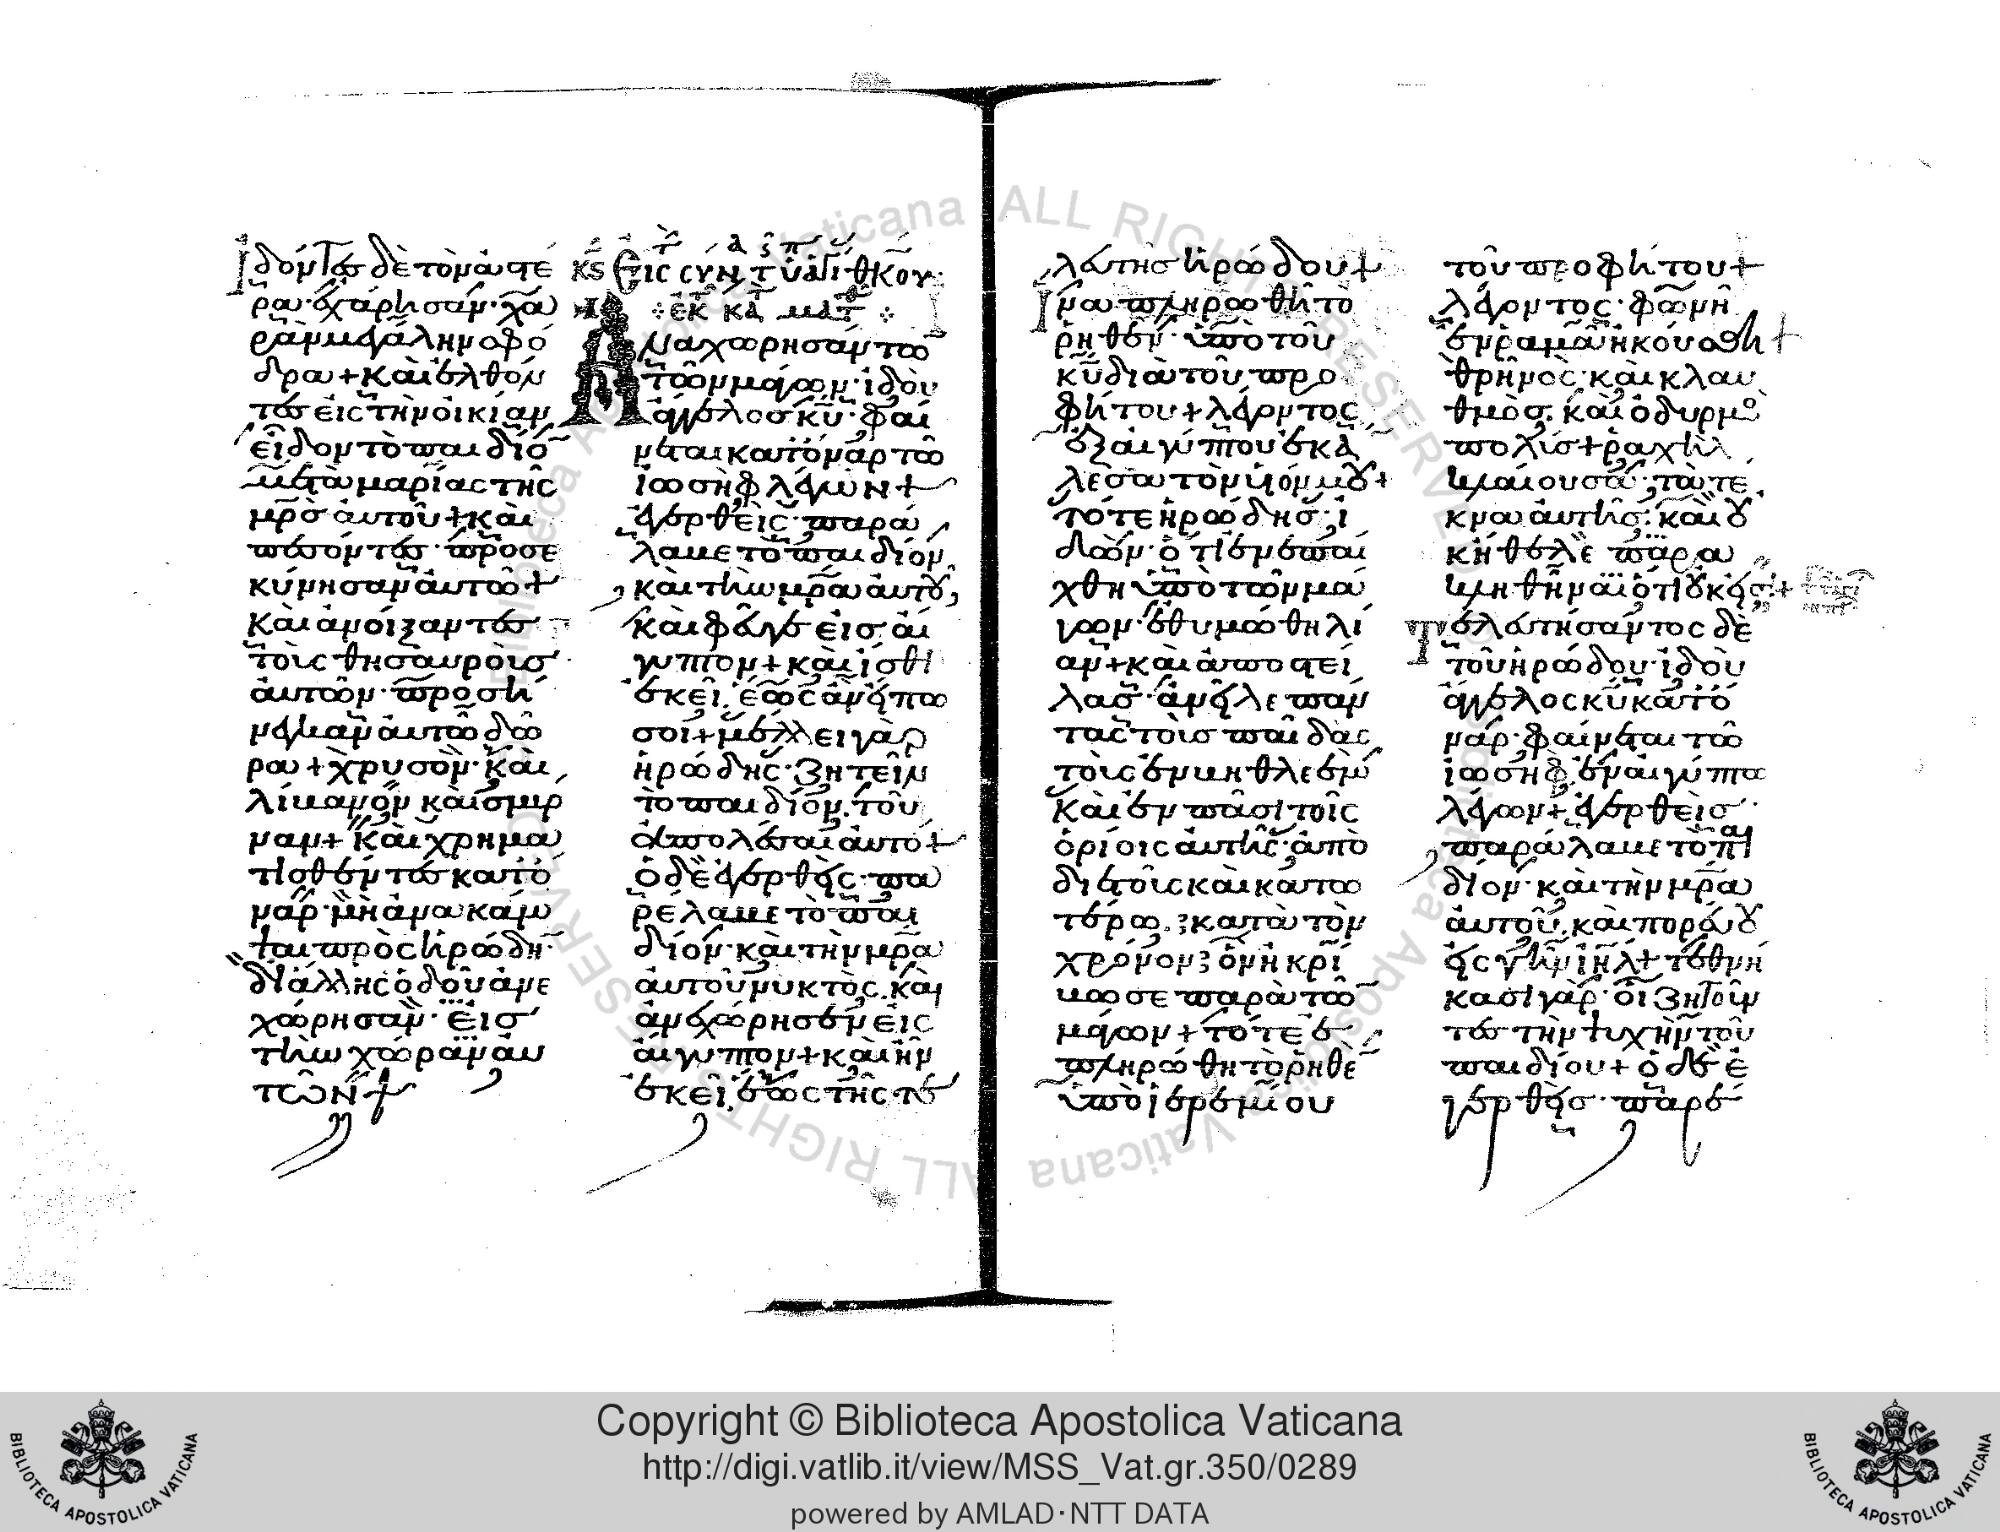 Ἰδόντες δὲ τὸν ἀστέ
ρα· ἐχάρησαν· χα
ρὰν μεγάλην σφό
δρα + Καὶ ἐλθόν
τες εἰς τὴν οἰκίαν
εἶδον τὸ παιδίο
μετὰ μαρίας τῆς
μρ̅ς αὐτοῦ + καὶ
πεσόντες· προσε
κύνησαν αὐτῶ +
Καὶ ἀνοίξαντες
τοὺς θησαυροὺς
αὐτῶν· προσή
νεγκαν αὐτῶ δῶ
ρα + χρυσὸν· καὶ
λίβανον καὶ σμύρ
ναν + Καὶ χρημα
τισθέντες κατ' ὄ
ναρ· μὴ ἀνακάμ
ψαι πρὸς ἡρώδη·
δι' ἄλλης ὁδοῦ ἀνε
χώρησαν· εἰς
τὴν χώραν αὐ
τῶν +
εἰς σύν τ ὑ ἁγί θκου
ἐκ κα ματ
Ἀναχωρησάντω
τῶν μάγων· ἰδοὺ
ἄγγελος κυ̅· φαί
νεται κατ' ὄναρ τῶ
ἰωσὴφ λέγων +
ἐγερθεὶς· παρά
λαβε τὸ παιδίον
καὶ τὴν μρ̅α αὐτοῦ,
καὶ φεῦγε εἰς αἴ
γυπτον + καὶ ἴσθι
ἐκεῖ. ἕως ἂν εἴπω
σοι + μέλλει γὰρ
ἡρώδης· ζητεῖν
τὸ παιδίον. τοῦ
ἀπολέσαι αὐτό +
ὁ δὲ ἐγερθεὶς· πα
ρέλαβε τὸ παι
δίον· καὶ τὴν μρ̅α
αὐτοῦ νυκτὸς. καὶ
ἀνεχώρησεν εἰς
αἴγυπτον + καὶ ἦν
ἐκεῖ. ἕως τῆς τε
λευτῆς ἡρώδου +
Ἵνα πληρωθῆ τὸ
ῥηθὲν· ὑπὸ τοῦ
κυ̅ διὰ τοῦ προ
φήτου + λέγοντος
ἐξ αἰγύπτου ἐκά
λεσα τὸν υἱόν μου +
τότε ἡρώδης· ἰ
δὼν· ὅτι ἐνεπαί
χθη ὑπὸ τῶν μά
γων· ἐθυμώθη λί
αν + καὶ ἀποστεί
λας· ἀνεῖλε πάν
τας τοὺς παῖδας
τοὺς ἐν βηθλεὲμ
Καὶ ἐν πᾶσι τοῖς
ὁρίοις αὐτῆς· ἀπὸ
διετοῦς καὶ κατω
τέρω. κατὰ τὸν
χρόνον ὃν ἠκρί
βωσε παρὰ τῶ
μάγων + τότε ἐ
πληρώθη τὸ ῥηθὲ
ὑπὸ ἱερεμίου
τοῦ προφήτου +
λέγοντος· φωνὴ
ἐν ραμᾶ ἠκούσθη +
θρῆνος· καὶ κλαυ
θμὸς. καὶ ὀδυρμὸ
πολύς + ῥαχὴλ
κλαίουσα· τὰ τέ
κνα αὐτῆς. καὶ οὐ
κ ἤθελε παρα
κληθῆναι ὅτι οὐκ εἰσὶ +
Τελευτήσαντος δὲ
τοῦ ἡρώδου· ἰδοὺ
ἄγγελος κυ̅ κατ' ὄ
ναρ· φαίνεται τῶ
ἰωσὴφ. ἐν αἰγύπτω
λέγων + ἐγερθεὶς
παράλαβε τὸ παι
δίον· καὶ τὴν μρ̅α
αὐτοῦ. καὶ πορεύου
εἰς γῆν ιη̅λ + τεθνή
κασι γὰρ· οἱ ζητοῦν
τες τὴν ψυχὴν τοῦ
παιδίου + ὁ δὲ ἐ
γερθεὶς· παρέ
Copyright © Biblioteca Apostolica Vaticana
http://digi.vatlib.it/view/MSS_Vat.gr.350/0289
powered by AMLAD·NTT DATA
BIBLIOTECA APOSTOLICA VATICANA
BIBLIOTECA APOSTOLICA VATICANA